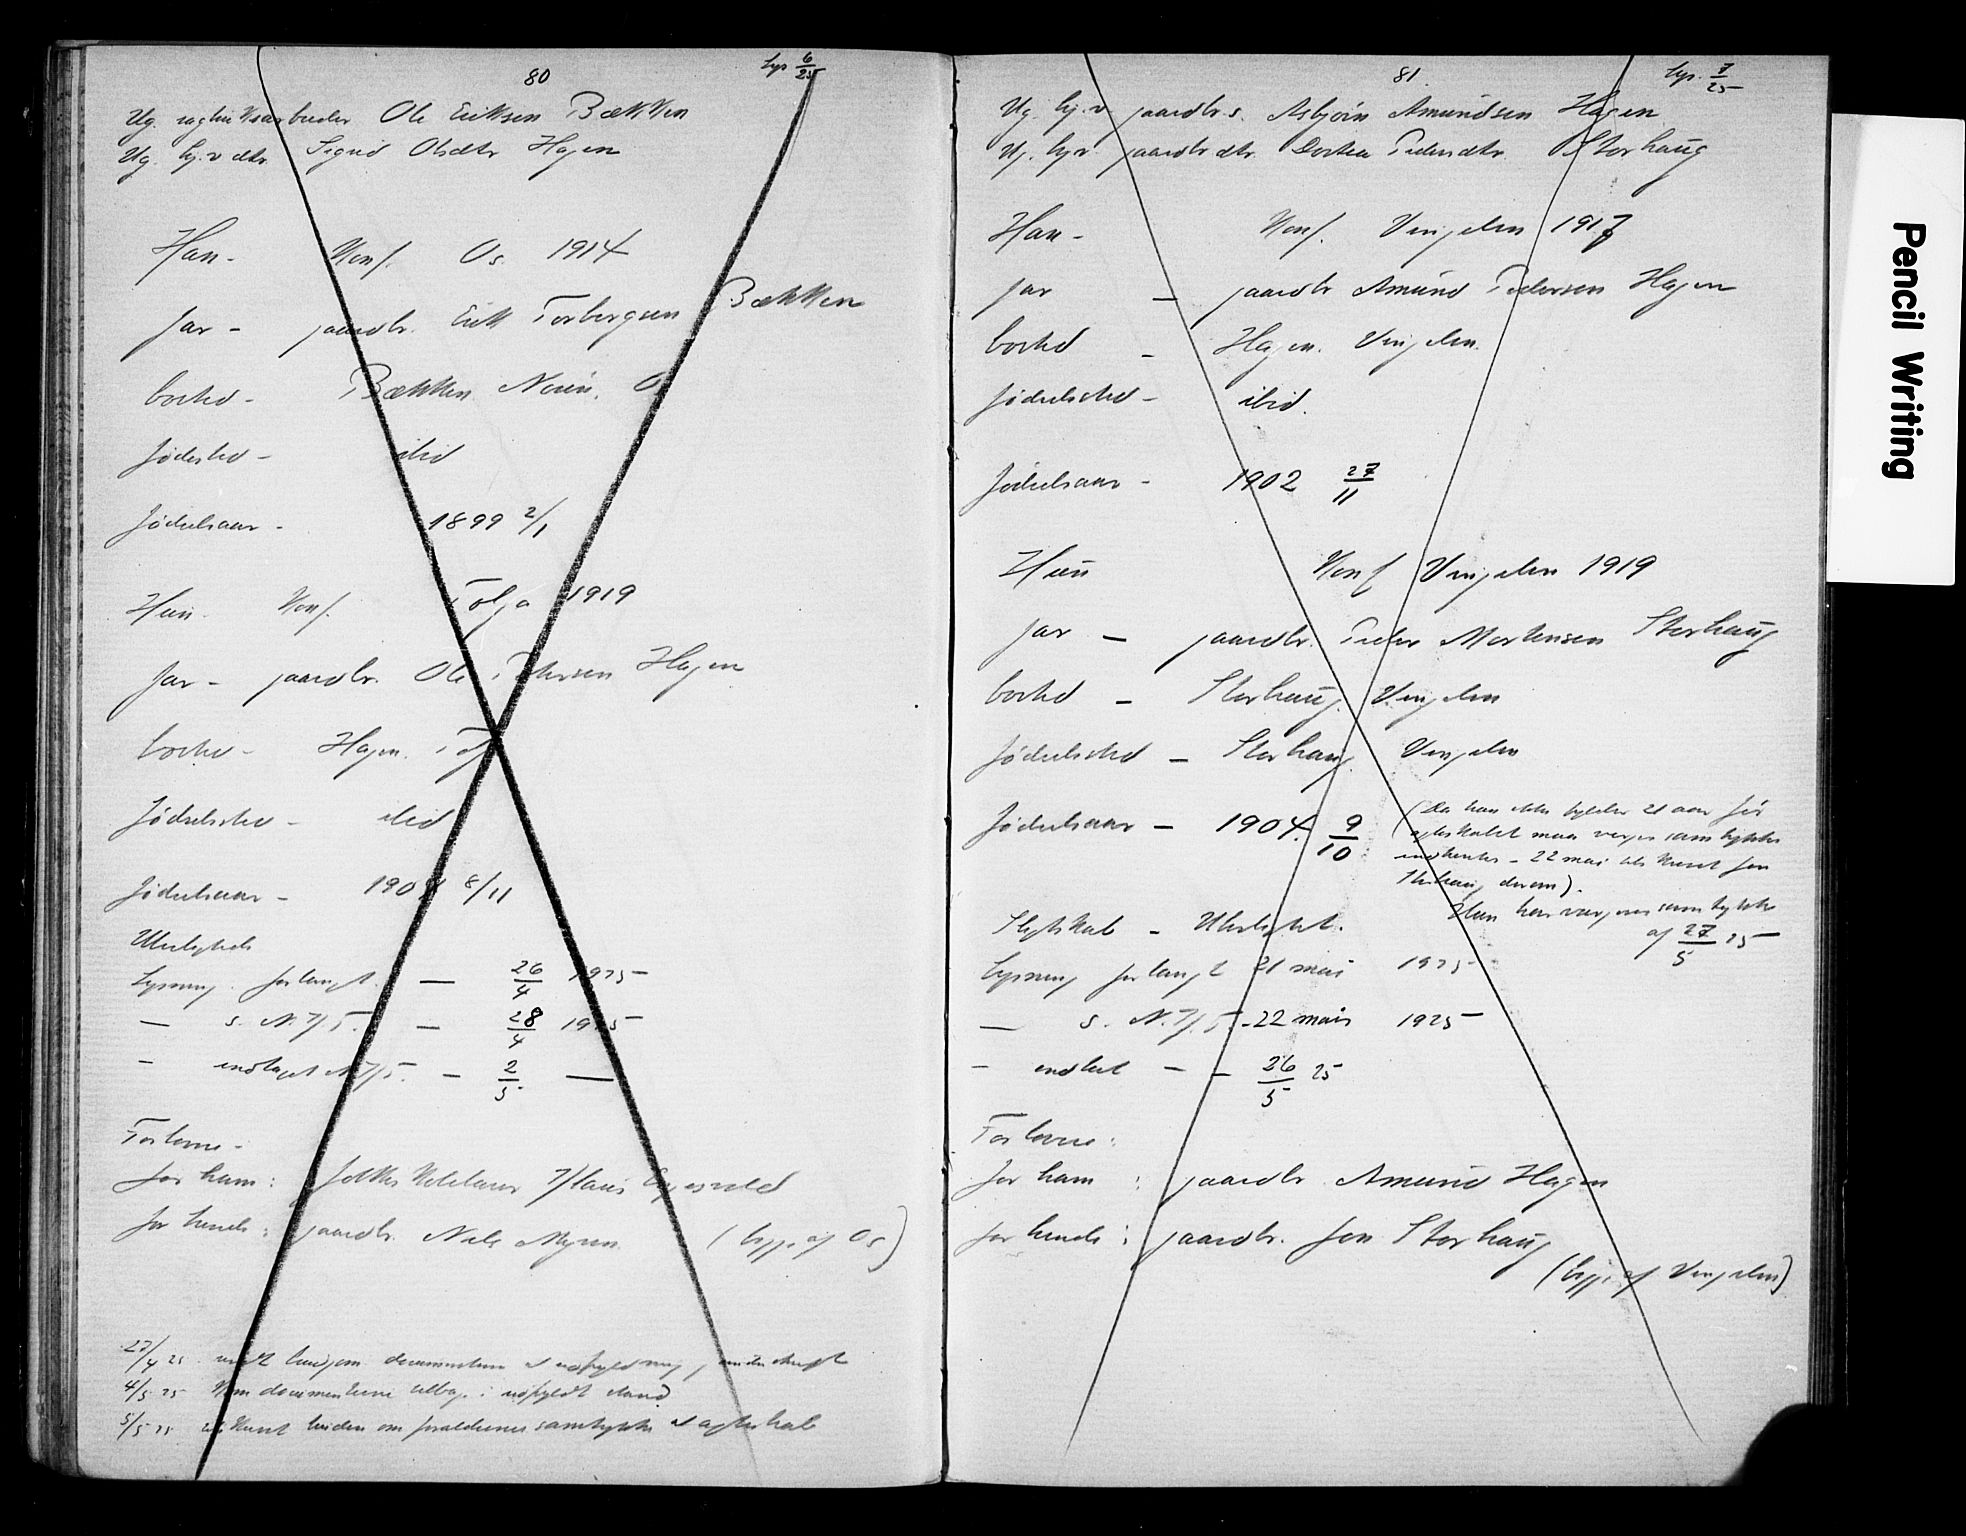 80
lys 6/25
Ug. sagbruksarbeider Ole Eriksen Bækken
Ug. hj.v. dtr. Sigrid Olsdtr Hagen
Han - Konf. Os 1914
far - gaardbr. Erik Torbergsen Bækken
bosted - Bækken Narsjø, Os
fødested - ibid
fødselsaar - 1899 2/1
Hun. Konf. Tolga 1919
far - gaardbr. Ole Pedersen Hagen
bosted - Hagen. Tolga
Fødselssted - ibid
Fødselsaar - 190 8/11
Ubeslegtede
Lysning forlangt. — 26/4 1925
— s. N.T/5. — 28/4 1925
- indtaget N.T/5. — 2/5 —
Forlovere -
for ham: Hans
for hende: gaardbr. Nils Myren. (bygs. af Os)
27/4 25 sendt dokumentene til udfyldning, underskrift
4/5 25 kom documenterne tilbage i udfyldt stand
5/5 25 om forældrenes samtykke til ægteskab
81.
lys. 7/25
Ug. hj.v. gaardbr.s. Asbjørn Amundsen Hagen
Ug. hj.v. gaardbr.dtr. Dortea Pedersdtr. Storhaug
Han - Konf. Vingelen 1917
far — gaardbr Amund Pedersen Hagen
bosted - Hagen. Vingelen.
fødselssted - ibid.
fødselsaar - 1902 27/11
Hun Konf Vingelen 1919
far — gaardbr. Peder Mortensen Storhaug
bosted — Storhaug. Vingelen
fødselssted — Storhaug. Vingelen
fødselsaar — 1904. 9/10
(Da hun ikke fylder 21 aar før
ægteskabet maa verges samtykke
indhentes - 22 mai tilskrevet Jon
Storhaug derom).
Hun har vergens samtykke
af 27/5 25
Slegtskab - Ubeslegtet.
Lysning forlangt 21 mai 1925
— s. N.T/5 - 22 mai 1925
- indtat - — 26/5 25
Forlovere:
for ham : gaardbr. Amund Hagen
for hende : gaardbr. Jon Storhaug
(bygs. af Vingelen)
Pencil Writing